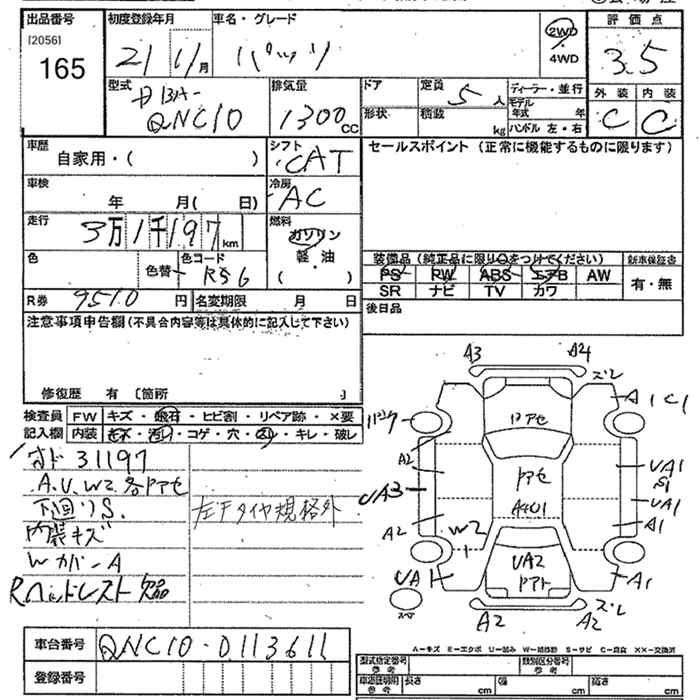 出品番号 初度登録年月 車名・グレード 2WD 評価点
[2056] 21 11月 パッソ ・
165 4WD 3.5
型式 排気量 ドア 定員 5人 ディーラー・並行 外装 内装
DBA- 1300cc 形状 積載 kg モデル年式 年 C C
QNC10 ハンドル 左・右
車歴 シフト セールスポイント (正常に機能するものに限ります)
自家用・( ) CAT
車検 冷房
年 月( 日) AC
走行 燃料
3万1千197km ガソリン
色 色替 色コード R56 軽・油
( )
装備品 (純正品に限り○をつけてください) 新車保証書
PS PW ABS エアB AW 有・無
SR ナビ TV カワ
R券 9510円 名変期限 月 日
後日品
注意事項申告欄(不具合内容等は具体的に記入して下さい)
修復歴 有 〔箇所 〕
検査員 FW キズ・飛石・ヒビ割・リペア跡・×要
記入欄 内装 キズ・汚れ・コゲ・穴・スレ・キレ・破レ
オド 31197
A.U.W2 各ドアセ
下回りS.
左F タイヤ規格外
内装キズ
Wカバ-A
Rヘッドレスト欠品
A3 A4
スレ
A1C1
ドアセ
A2
UA3
ドアセ
UA1
S1
UA1
A401
A2
A1
W2
UA2
UA1
A1
スペア
A2 A2 スレ
車台番号 QNC10-0113611
登録番号
A-キズ E-エクボ U-凹み W-補修跡 S-サビ C-腐食 XX-交換済
型式指定番号 参考 類別区分番号 参考
車両諸明用 参考 長さ cm 幅 cm 高さ cm